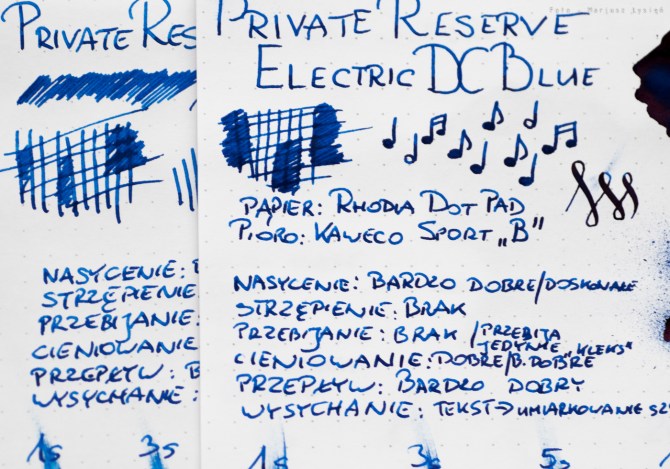 Foto: Mariusz Łysień
PRIVATE RES
PRIVATE RESERVE
ELECTRIC DC BLUE
PAPIER: RHODIA DOT PAD
PIÓRO: KAWECO SPORT „B"
NASYCENIE:
STRZĘPIENIE
PRZEBIJANIE:
CIENIOWANIE
PRZEPŁYW: B
WYSYCHANIE:
1s 3s
NASYCENIE: BARDZO DOBRE/DOSKONAŁE
STRZĘPIENIE: BRAK
PRZEBIJANIE: BRAK /PRZEBIJA
JEDYNIE „KLEKS"
CIENIOWANIE: DOBRE/B. DOBRE
PRZEPŁYW: BARDZO DOBRY
WYSYCHANIE: TEKST→UMIARKOWANIE SZ
1s 3s 5s